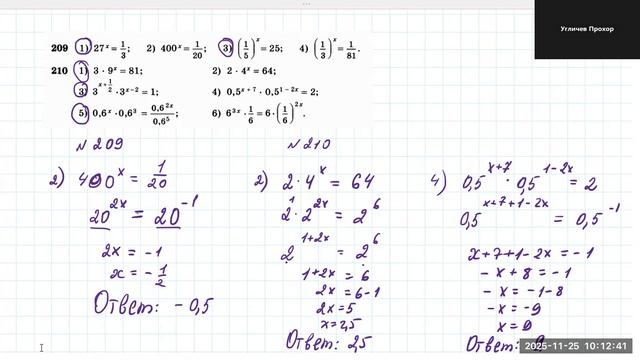 Угличев Прохор
209 1) 27^x = 1/3; 2) 400^x = 1/20; 3) (1/5)^x = 25; 4) (1/3)^x = 1/81.
210 1) 3 · 9^x = 81; 2) 2 · 4^x = 64;
3) 3^(x+1/2) · 3^(x−2) = 1; 4) 0,5^(x+7) · 0,5^(1−2x) = 2;
5) 0,6^x · 0,6^3 = 0,6^(2x)/0,6^5; 6) 6^(3x) · 1/6 = 6 · (1/6)^(2x).
N 209
2) 400^x = 1/20
20^(2x) = 20^(-1)
2x = -1
x = -1/2
Ответ: -0,5
N 210
2) 2 · 4^x = 64
2^1 · 2^(2x) = 2^6
2^(1+2x) = 2^6
1+2x = 6
2x = 6-1
2x = 5
x = 2,5
Ответ: 2,5
4) 0,5^(x+7) · 0,5^(1-2x) = 2
0,5^(x+7+1-2x) = 0,5^(-1)
x+7+1-2x = -1
-x+8 = -1
-x = -1-8
-x = -9
x = 9
Ответ: 9
2025-11-25 10:12:41